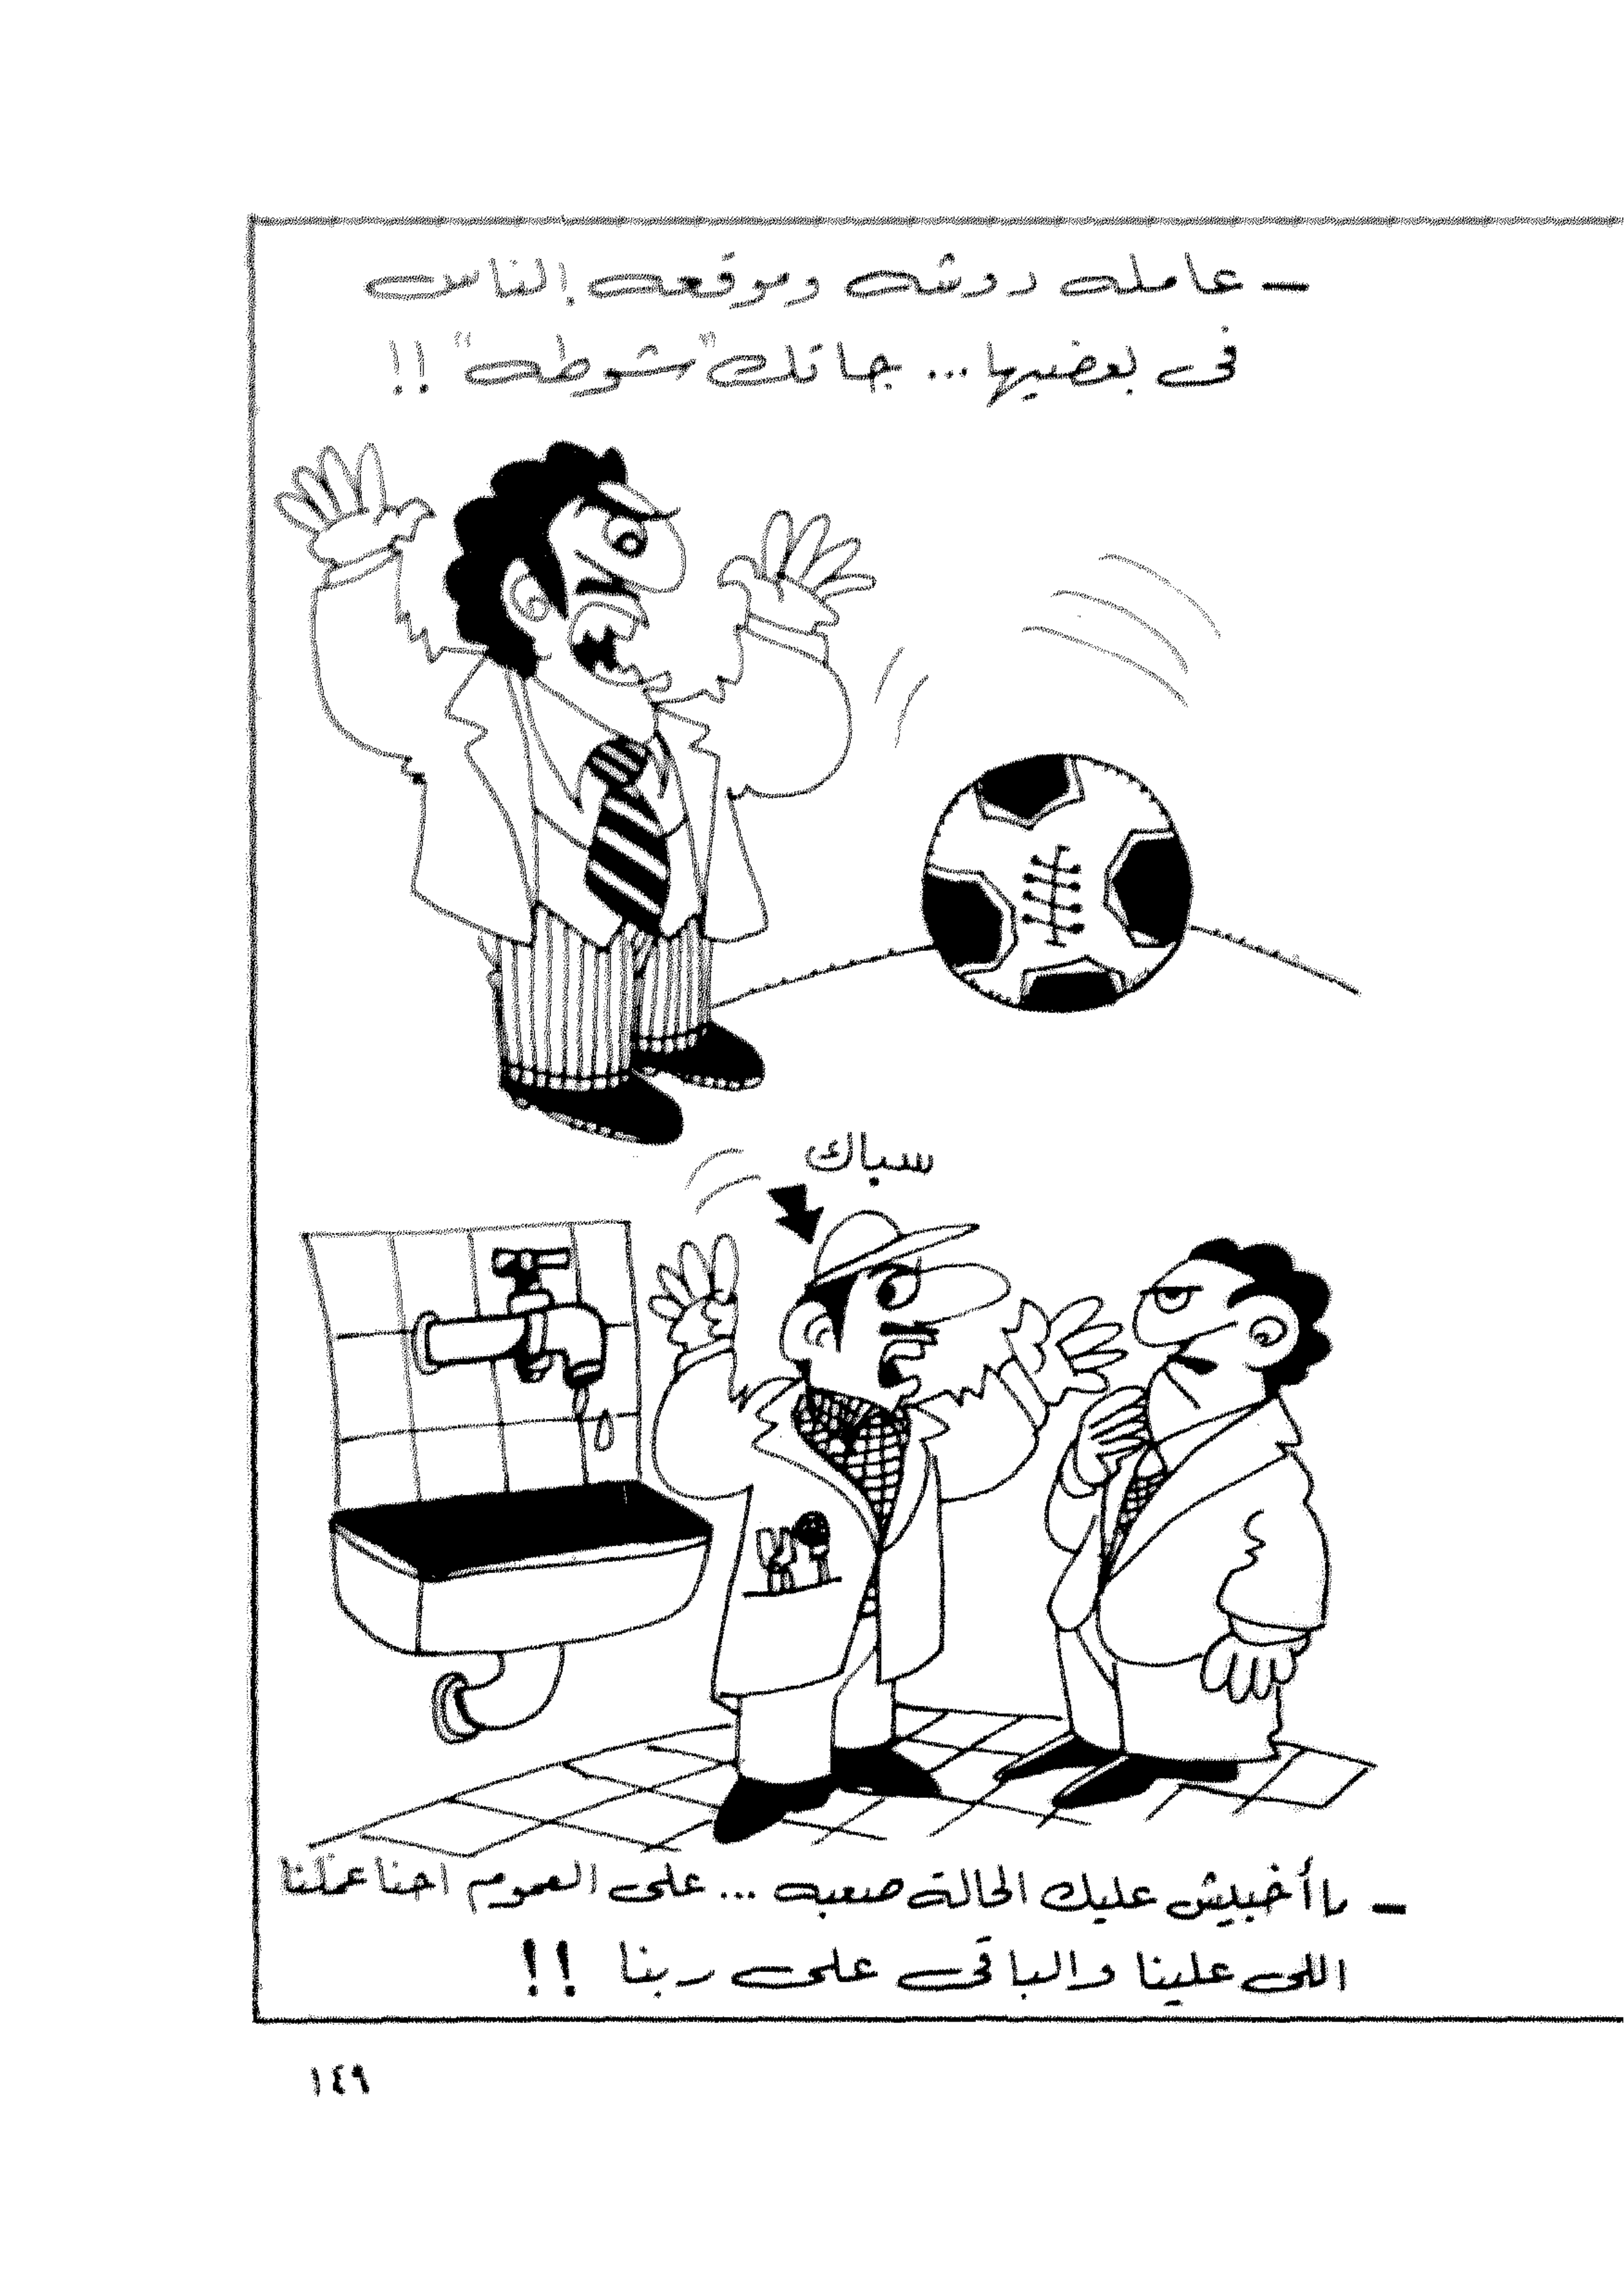 – عامله دوشه وموقعه الناس
فى بعضيها... جاتك "شوطه" !!
سباك
– ما أخبيش عليك الحالة صعبه ... على العموم احنا عملنا
اللى علينا والباقى على ربنا !!
١٤٩